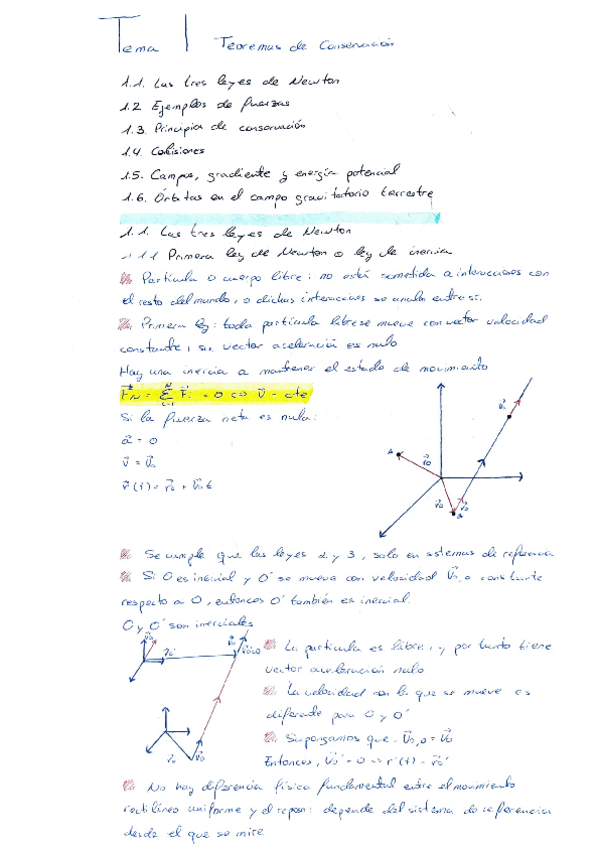 Tema 1 Teoremas de Conservación
1.1. Las tres leyes de Newton
1.2 Ejemplos de fuerzas
1.3. Principia de conservación
1.4. Colisiones
1.5. Campos, gradiente y energía potencial
1.6. Órbitas en el campo gravitatorio terrestre
1.1. Las tres leyes de Newton
1.1.1 Primera ley de Newton o ley de inercia
Partícula o cuerpo libre: no está sometida a interacciones con
el resto del mundo, o dichas interacciones se anulan entre sí.
Primera ley: toda partícula libre se mueve con vector velocidad
constante, su vector aceleración es nulo
Hay una inercia a mantener el estado de movimiento
= Σ = 0 ⇔ v⃗ = cte
Si la fuerza neta es nula:
a⃗ = 0
v⃗ = v⃗₀
r⃗(t) = r⃗₀ + v⃗₀t
Se cumple que las leyes 2 y 3, solo en sistemas de referencia
Si O es inercial y O' se mueve con velocidad constante
respecto a O, entonces O' también es inercial.
O y O' son inerciales
La partícula es libre, y por tanto tiene
vector aceleración nulo
La velocidad con la que se mueve es
diferente para O y O'
Supongamos que
Entonces,
No hay diferencia física fundamental entre el movimiento
rectilíneo uniforme y el reposo: depende del sistema de referencia
desde el que se mire